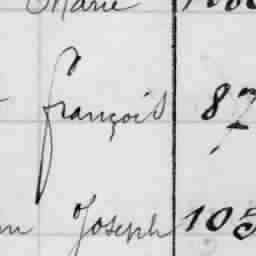 Marie
François 87
Joseph 105